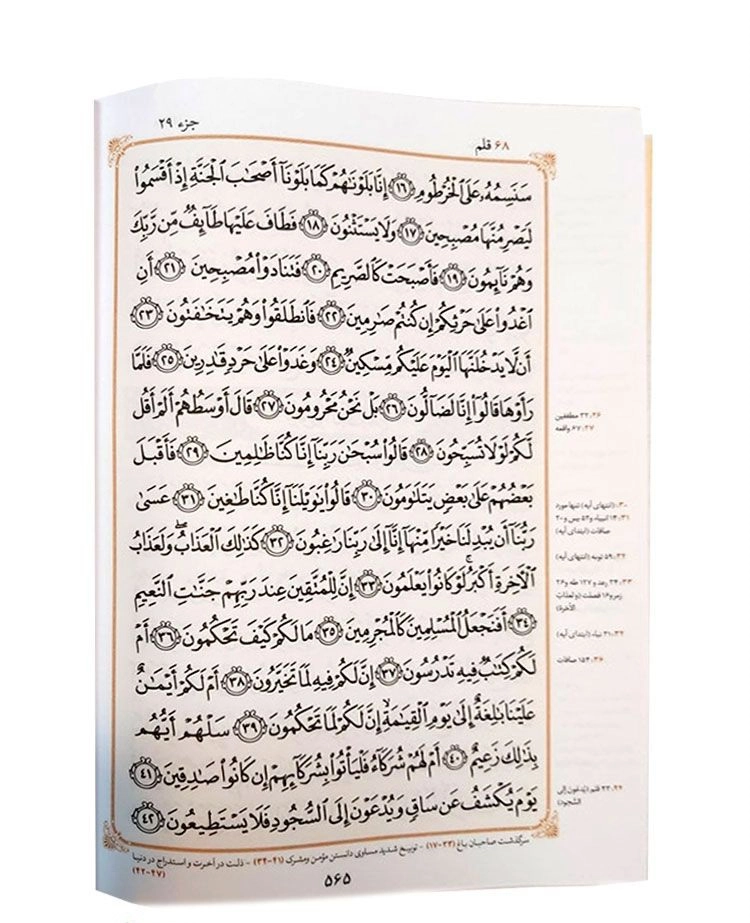 ۶۸ قلم
جزء ۲۹
سَنَسِمُهُۥ عَلَى ٱلْخُرْطُومِ ۝١٦ إِنَّا بَلَوْنَٰهُمْ كَمَا بَلَوْنَآ أَصْحَٰبَ ٱلْجَنَّةِ إِذْ أَقْسَمُوا۟
لَيَصْرِمُنَّهَا مُصْبِحِينَ ۝١٧ وَلَا يَسْتَثْنُونَ ۝١٨ فَطَافَ عَلَيْهَا طَآئِفٌ مِّن رَّبِّكَ
وَهُمْ نَآئِمُونَ ۝١٩ فَأَصْبَحَتْ كَٱلصَّرِيمِ ۝٢٠ فَتَنَادَوْا۟ مُصْبِحِينَ ۝٢١ أَنِ
ٱغْدُوا۟ عَلَىٰ حَرْثِكُمْ إِن كُنتُمْ صَٰرِمِينَ ۝٢٢ فَٱنطَلَقُوا۟ وَهُمْ يَتَخَٰفَتُونَ ۝٢٣
أَن لَّا يَدْخُلَنَّهَا ٱلْيَوْمَ عَلَيْكُم مِّسْكِينٌ ۝٢٤ وَغَدَوْا۟ عَلَىٰ حَرْدٍ قَٰدِرِينَ ۝٢٥ فَلَمَّا
رَأَوْهَا قَالُوٓا۟ إِنَّا لَضَآلُّونَ ۝٢٦ بَلْ نَحْنُ مَحْرُومُونَ ۝٢٧ قَالَ أَوْسَطُهُمْ أَلَمْ أَقُل
لَّكُمْ لَوْلَا تُسَبِّحُونَ ۝٢٨ قَالُوا۟ سُبْحَٰنَ رَبِّنَآ إِنَّا كُنَّا ظَٰلِمِينَ ۝٢٩ فَأَقْبَلَ
بَعْضُهُمْ عَلَىٰ بَعْضٍ يَتَلَٰوَمُونَ ۝٣٠ قَالُوا۟ يَٰوَيْلَنَآ إِنَّا كُنَّا طَٰغِينَ ۝٣١ عَسَىٰ
رَبُّنَآ أَن يُبْدِلَنَا خَيْرًا مِّنْهَآ إِنَّآ إِلَىٰ رَبِّنَا رَٰغِبُونَ ۝٣٢ كَذَٰلِكَ ٱلْعَذَابُ ۖ وَلَعَذَابُ
ٱلْءَاخِرَةِ أَكْبَرُ ۚ لَوْ كَانُوا۟ يَعْلَمُونَ ۝٣٣ إِنَّ لِلْمُتَّقِينَ عِندَ رَبِّهِمْ جَنَّٰتِ ٱلنَّعِيمِ
۝٣٤ أَفَنَجْعَلُ ٱلْمُسْلِمِينَ كَٱلْمُجْرِمِينَ ۝٣٥ مَا لَكُمْ كَيْفَ تَحْكُمُونَ ۝٣٦ أَمْ
لَكُمْ كِتَٰبٌ فِيهِ تَدْرُسُونَ ۝٣٧ إِنَّ لَكُمْ فِيهِ لَمَا تَخَيَّرُونَ ۝٣٨ أَمْ لَكُمْ أَيْمَٰنٌ
عَلَيْنَا بَٰلِغَةٌ إِلَىٰ يَوْمِ ٱلْقِيَٰمَةِ ۙ إِنَّ لَكُمْ لَمَا تَحْكُمُونَ ۝٣٩ سَلْهُمْ أَيُّهُم
بِذَٰلِكَ زَعِيمٌ ۝٤٠ أَمْ لَهُمْ شُرَكَآءُ فَلْيَأْتُوا۟ بِشُرَكَآئِهِمْ إِن كَانُوا۟ صَٰدِقِينَ ۝٤١
يَوْمَ يُكْشَفُ عَن سَاقٍ وَيُدْعَوْنَ إِلَى ٱلسُّجُودِ فَلَا يَسْتَطِيعُونَ ۝٤٢
۲۶: ۳۲ مطففین
۲۷: ۶۷ واقعه
۳۰: (انتهای آیه) تنها مورد
۳۱: ۱۴ انبیاء و ۵۲ یس و ۲۰
صافات (ابتدای آیه)
۳۲: ۵۹ توبه (انتهای آیه)
۳۳: ۳۴ رعد و ۱۲۷ طه و ۲۶
زمر و ۱۶ فصلت (ولعذابُ
الآخرة)
۳۴: ۳۱ نباء (ابتدای آیه)
۳۶: ۱۵۴ صافات
۴۲: ۴۳ قلم (یُدعَونَ إلی
السُّجود)
سرگذشت صاحبان باغ (۳۳-۱۷) - توبیخ شدید مساوی دانستن مؤمن و مشرک (۴۱-۳۴) - ذلت در آخرت و استدراج در دنیا
(۴۷-۴۲)
۵۶۵